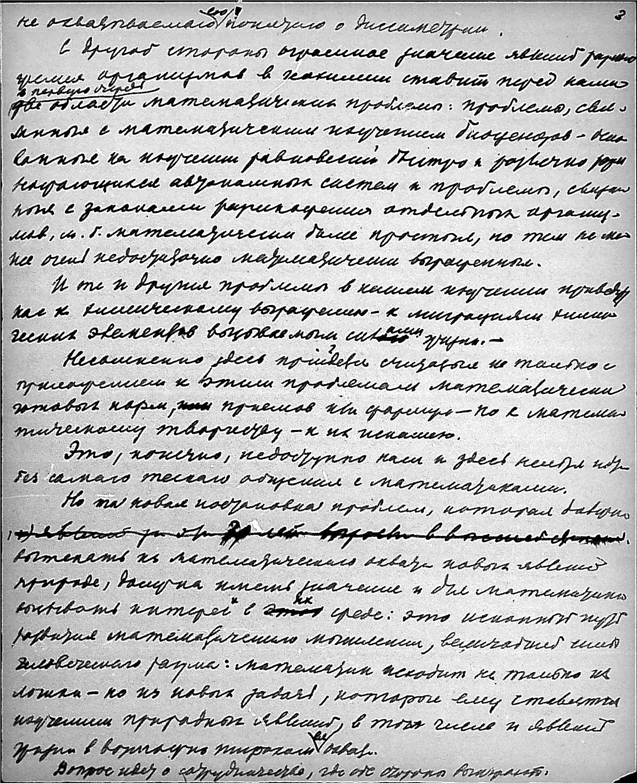 3
не охватываемого понятию о диссиметрии.
С другой стороны огромное значение явлений размно
жения организмов в геохимии ставит перед нами
в первую очередь
две области математических проблем: проблемы, свя-
занные с математическим изучением биоценозов - осно
ванные на изучении равновесий быстро и различно разм
ножающихся автономных систем и проблемы, связан
ные с законами размножения отдельных организ-
мов, м. б. математически более простые, но тем не ме-
нее очень недостаточно математически выраженные.
И те и другие проблемы в нашем изучении приводят
нас к химическому выражению - к миграциям хими-
ческих элементов вызываемым жизни. -
Несомненно здесь придется считаться не только с
приложением к этим проблемам математически
готовых норм, приемов или формул - но к матема
тическому творчеству - к их исканию.
Это, конечно, недоступно нам и здесь нельзя идти
без самого тесного общения с математиками.
Но та новая постановка проблем, которая должна
вытекать из математического охвата новых явлений
природе, должна иметь значение и для математики
вызывать интерес в их среде: это исконный путь
развития математического мышления, величайшей силы
человеческого разума: математик исходит не только из
логики - но из новых задач, которые ему ставятся
изучением природных явлений, в том числе и явлений
жизни в возможно широком ее охвате.
Вопрос идет о сотрудничестве, где обе стороны выиграют.